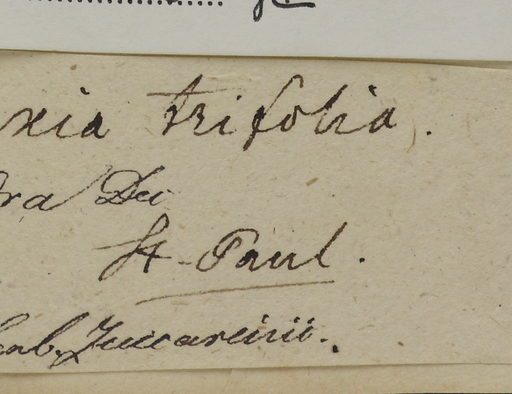 xia trifolia.
ra
St. Paul.
Zuccarinii.